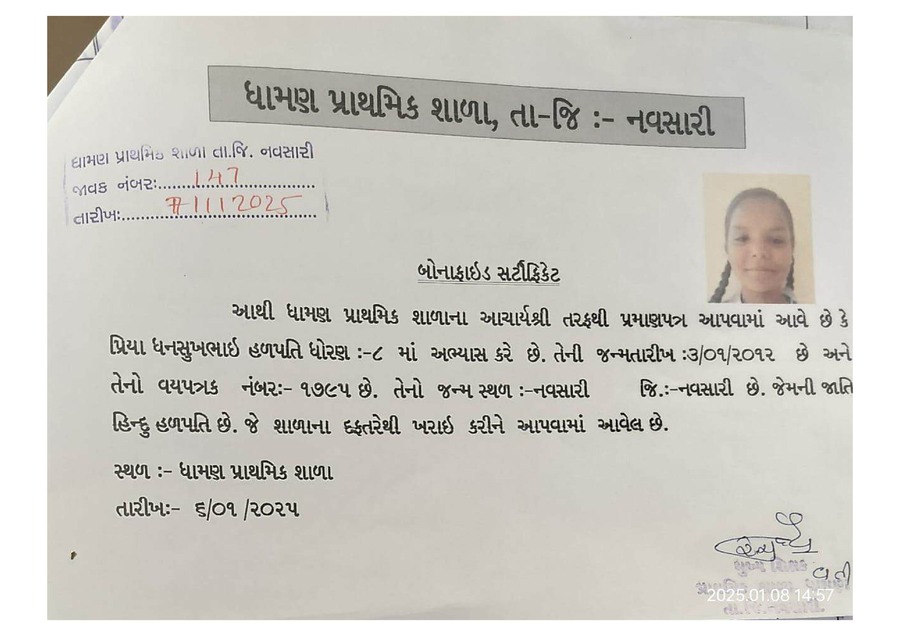 ધામણ પ્રાથમિક શાળા, તા-જિ :- નવસારી
ધામણ પ્રાથમિક શાળા તા.જિ. નવસારી
જાવક નંબર:..........147..........
તારીખ:..........7/1/2025..........
બોનાફાઇડ સર્ટીફિકેટ
આથી ધામણ પ્રાથમિક શાળાના આચાર્યશ્રી તરફથી પ્રમાણપત્ર આપવામાં આવે છે કે
પ્રિયા ધનસુખભાઇ હળપતિ ધોરણ :-૮ માં અભ્યાસ કરે છે. તેની જન્મતારીખ :૩/૦૧/૨૦૧૨ છે અને
તેનો વયપત્રક નંબર:- ૧૭૯૫ છે. તેનો જન્મ સ્થળ :-નવસારી જિ.:-નવસારી છે. જેમની જાતિ
હિન્દુ હળપતિ છે. જે શાળાના દફતરેથી ખરાઇ કરીને આપવામાં આવેલ છે.
સ્થળ :- ધામણ પ્રાથમિક શાળા
તારીખ:- ૬/૦૧ /૨૦૨૫
2025.01.08 14:57